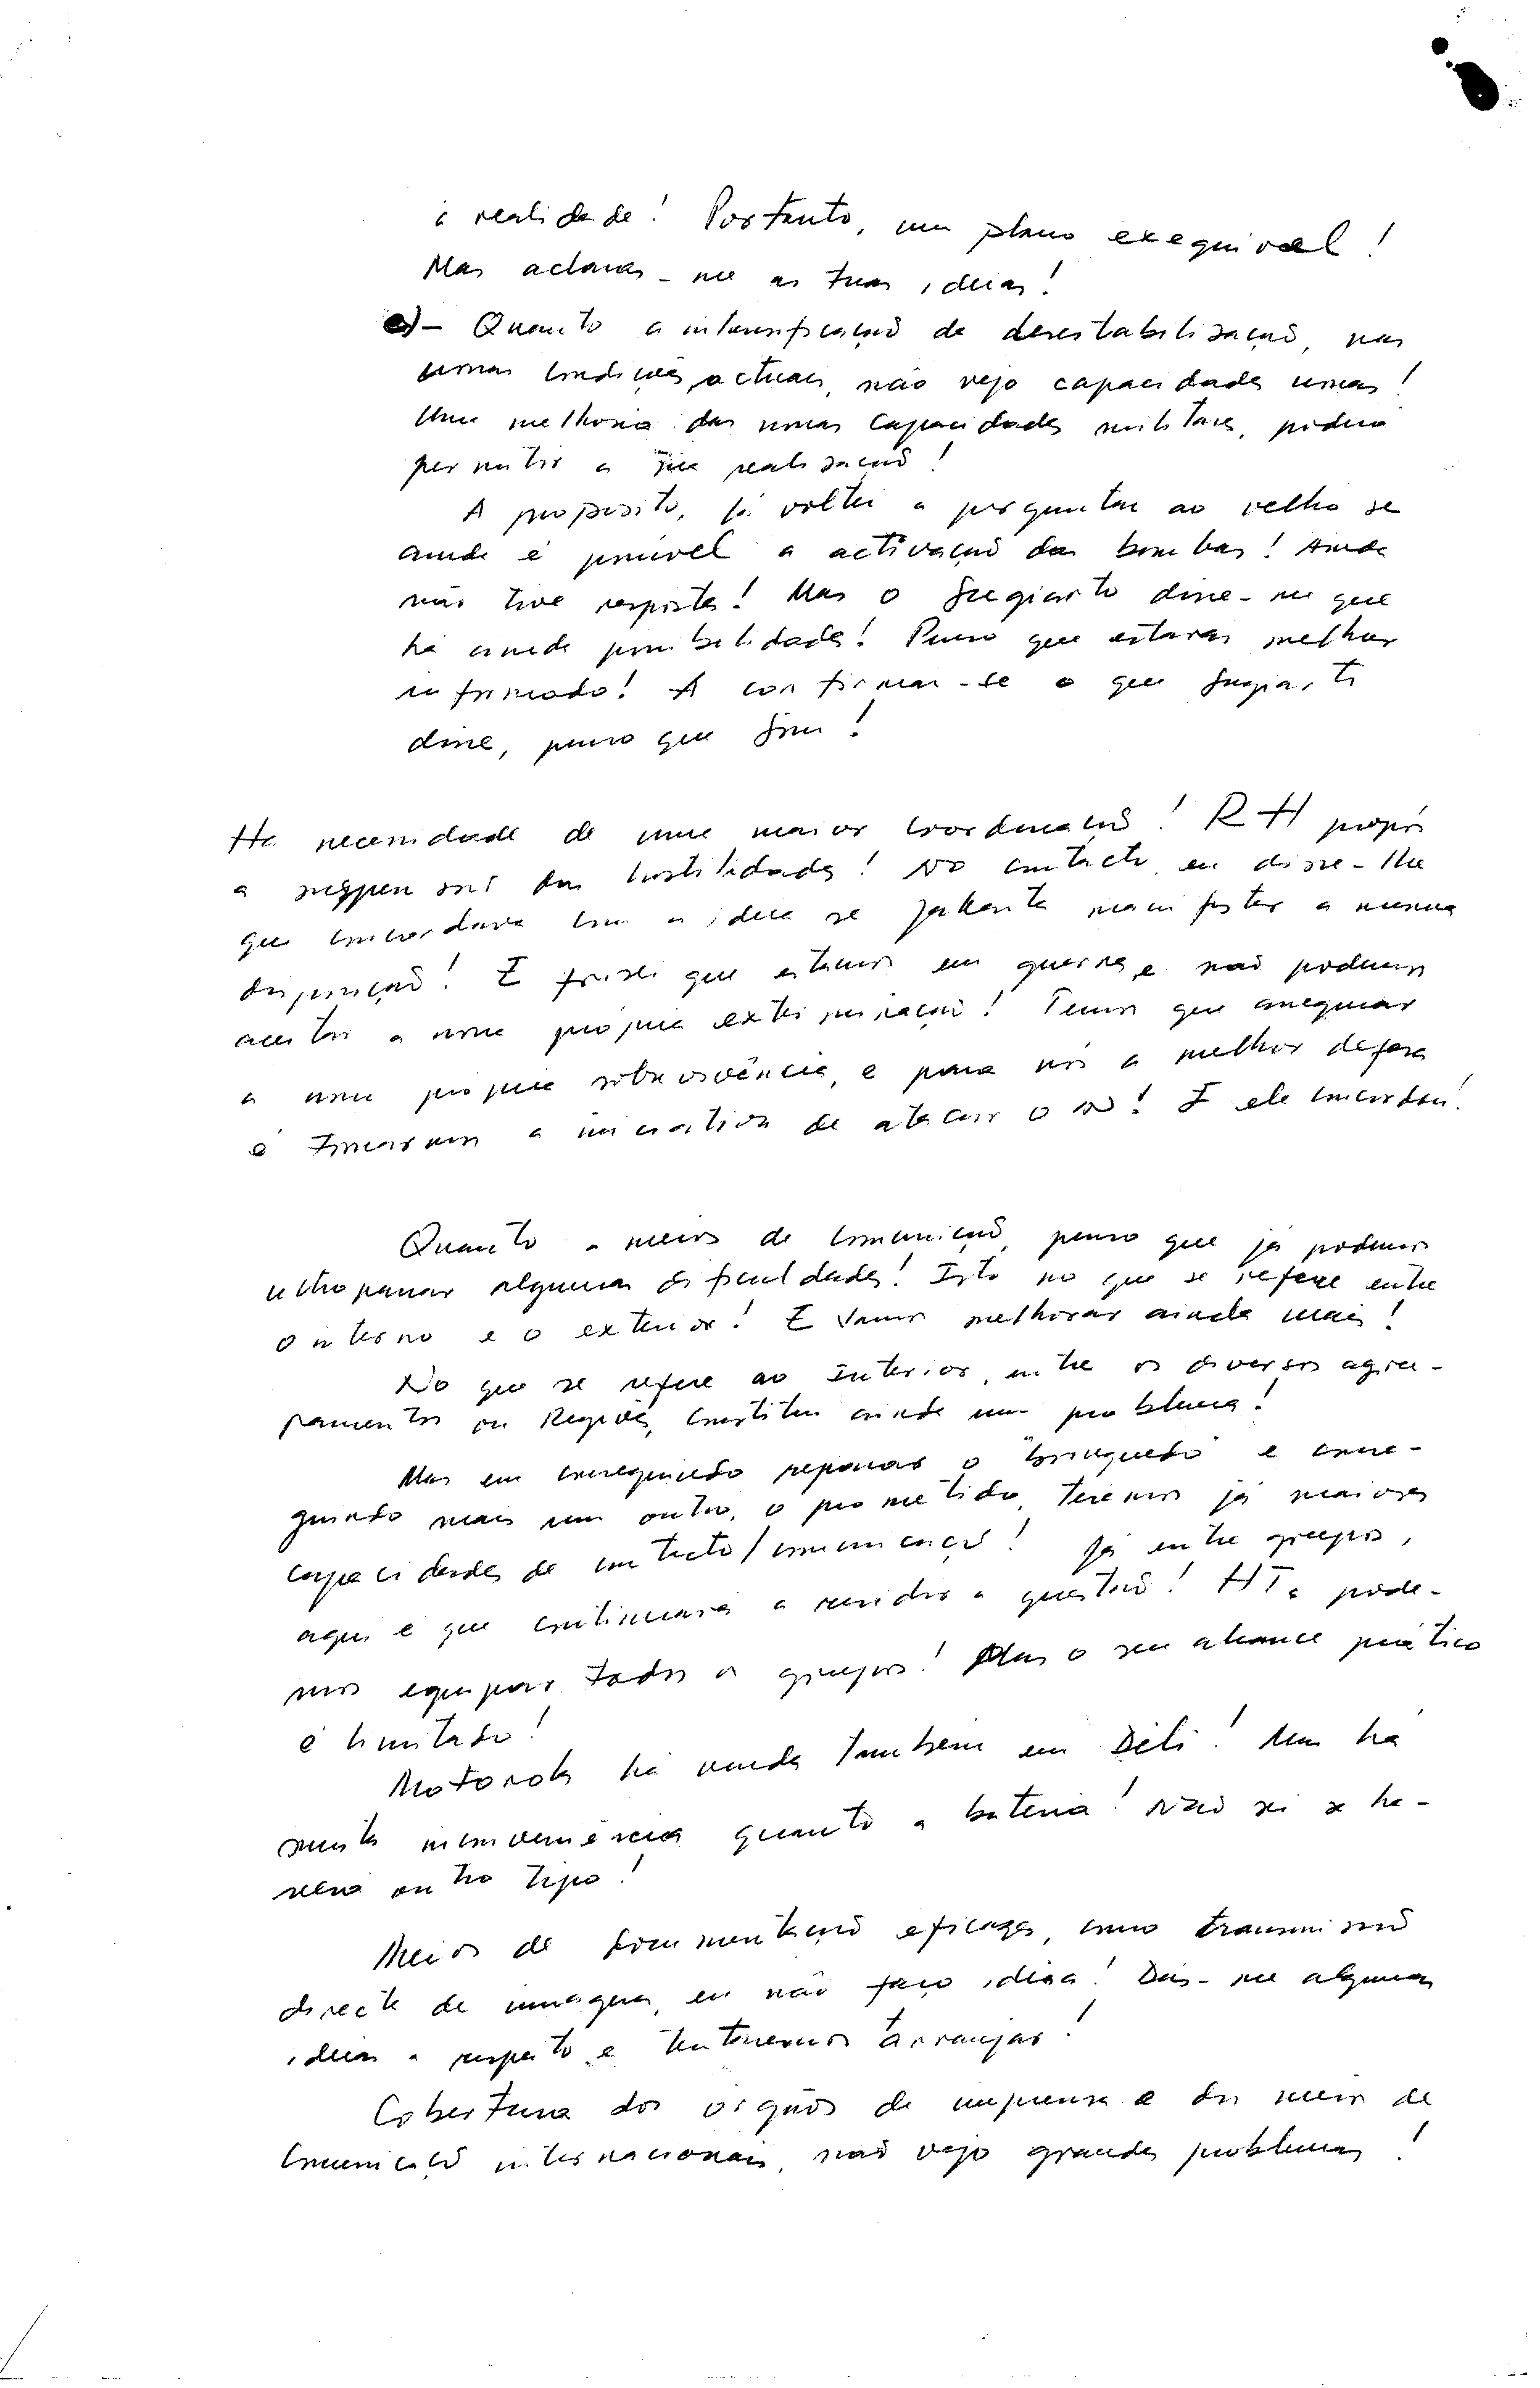 à realidade! Portanto, um plano exequivel!
Mas aclaras-me as tuas ideias!
e) - Quanto a intensificação de desestabilização, nas
nossas condições actuais, não vejo capacidades nossas!
Uma melhoria das nossas capacidades militares, poderá
permitir a sua realização!
A proposito, já voltei a perguntar ao velho se
ainda é possível a activação das bombas! Ainda
não tive resposta! Mas o Sugiarto disse-me que
há ainda possibilidades! Penso que estaras melhor
informado! A confirmar-se o que Sugiarto
disse, penso que sim!
Ha necessidade de uma maior coordenação! RH propôs
a suspensão das hostilidades! No contacto, eu disse-lhe
que concordava com a ideia se Jakarta manifestar a mesma
disposição! E frisei que estamos em guerra e não podemos
aceitar a nossa própria exterminação! Temos que assegurar
a nossa própria sobrevivência, e para nós a melhor defesa
é tomarmos a iniciativa de atacar o in! E ele concordou!
Quanto a meios de comunicação, penso que já podemos
ultrapassar algumas dificuldades! Isto no que se refere entre
o interno e o exterior! E vamos melhorar ainda mais!
No que se refere ao interior, entre os diversos agru-
pamentos ou Regiões, constitui ainda um problema!
Mas em conseguindo reparar o "brinquedo" e conse-
guindo mais um outro, o prometido, teremos já maiores
capacidades de contacto/comunicação! Já entre grupos,
aqui é que continuará a residir a questão! HTs pode-
mos equipar todos os grupos! Mas o seu alcance prático
é limitado!
Motorola há venda também em Dili! Mas há
muita inconveniência quanto a bateria! Não sei se ha-
verá outro tipo!
Meios de documentação eficazes, como transmissão
directa de imagens, eu não faço ideia! Dás-me algumas
ideias a respeito e tentaremos arranjar!
Cobertura dos orgãos de imprensa e dos meios de
comunicação internacionais, não vejo grandes problemas!